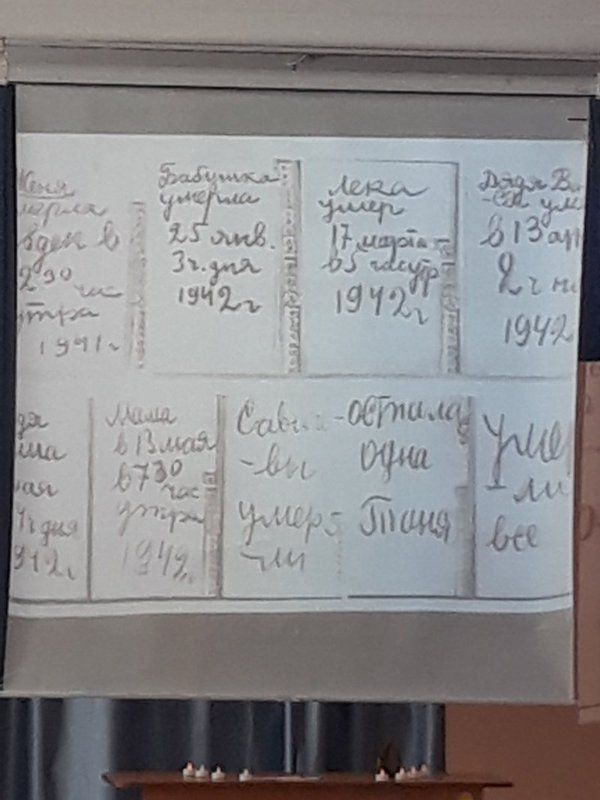 Женя
мерла
в
2 30 час
утра
1941 г
Бабушка
умерла
25 янв.
3 ч. дня
1942 г
Лека
умер
17 марта
в 5 час утр
1942 г
Дядя Ва
-ся уме
в 13 ап
2 ч
1942
дя
ша
ая
4 ч дня
942 г
Мама
в 13 мая
в 7 30
час
утра
1942 г
Сави
-вы
умер
-ли
остала
одна
Таня
Уме
-ли
все